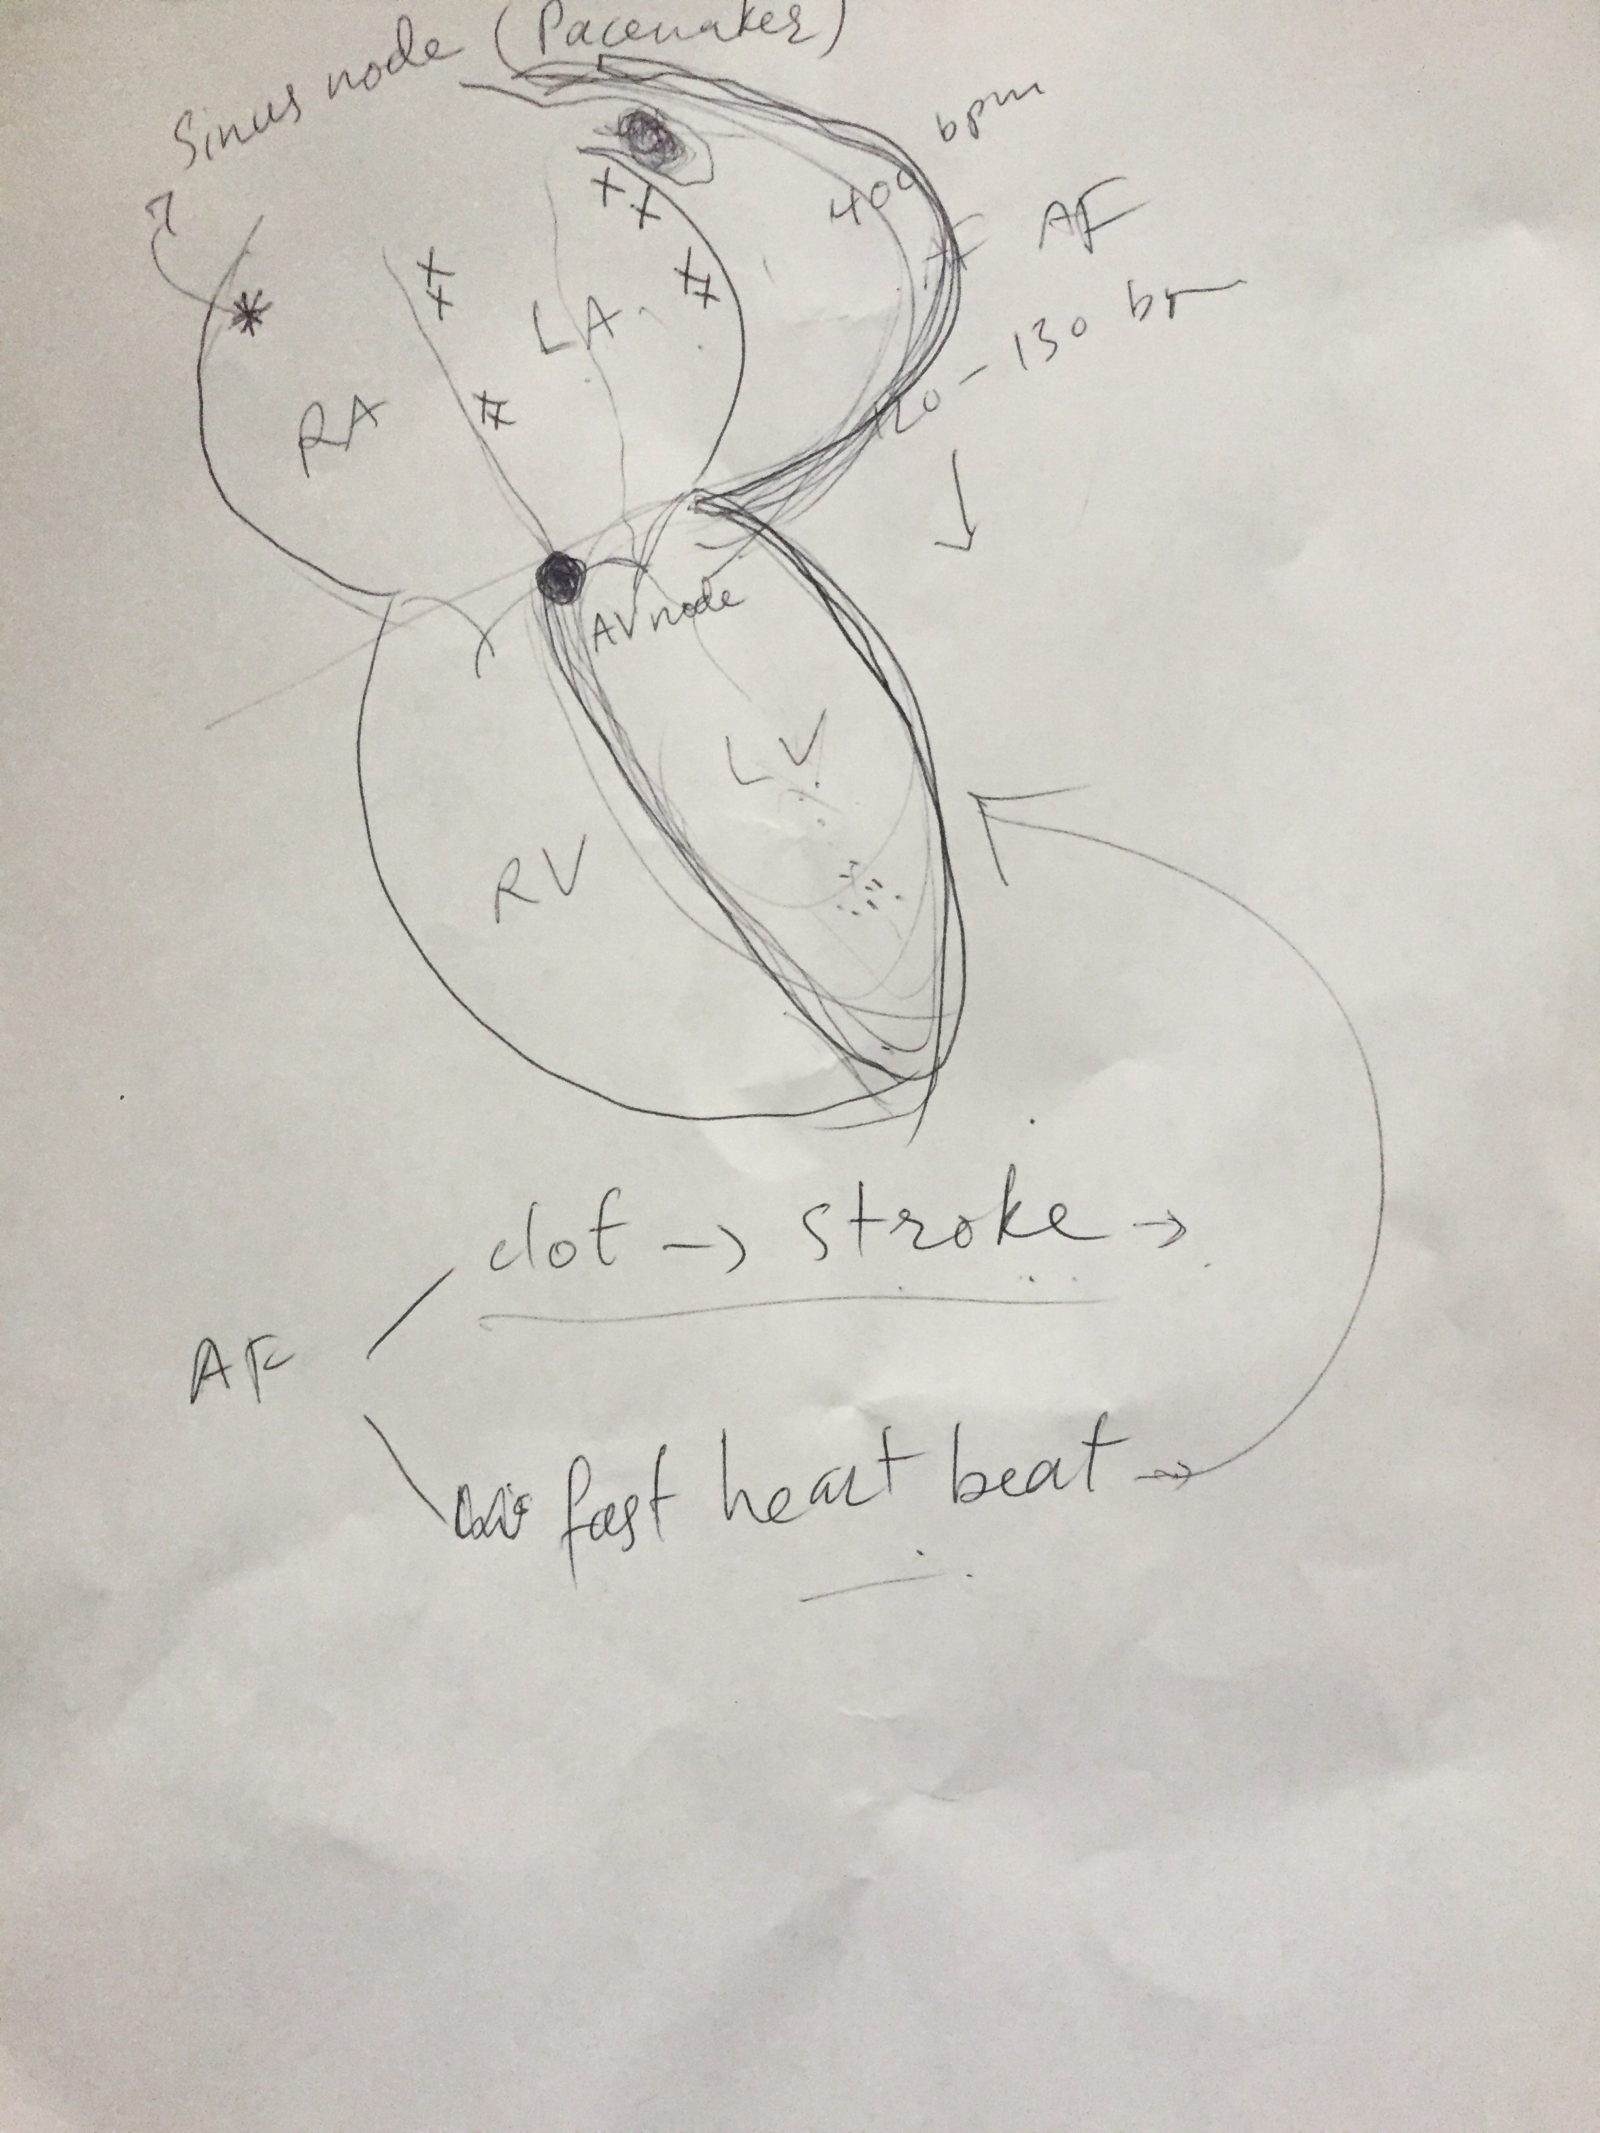 Sinus node (Pacemaker)
400 bpm
AF
120-130 bpm
LA
RA
AV node
LV
RV
clot → stroke →
AF
fast heart beat →